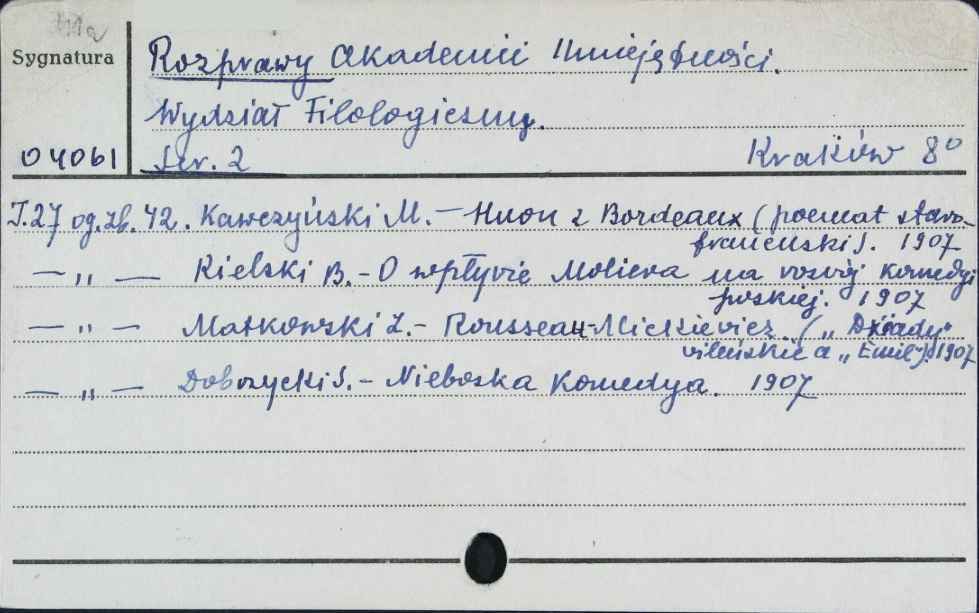 Sygnatura
Rozprawy Akademii Umiejętności.
Wydział Filologiczny.
04061 Ser. 2 Kraków 8°
T.27 og. zb. 42. Kawczyński M. — Huon z Bordeaux (poemat staro-
francuski). 1907
— „ — Kielski B. - O wpływie Moliera na rozwój komedyi
polskiej. 1907
— „ — Matkowski Z. - Rousseau-Mickiewicz („Dziady"
wileńskie a „Emil"). 1907
— „ — Dobrzycki S. - Nieboska Komedya. 1907